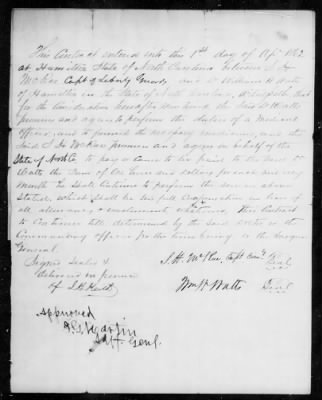 This Contract entered into this 1st day of Apl 1862
at Hamilton State of North Carolina between S H
McRae Capt of Liberty Guards and Dr William H Watts
of Hamilton in the State of North Carolina, Witnesseth that
for the Consideration hereafter mentioned the said Dr Watts
promises and agrees to perform the duties of a Medical
Officer, and to furnish the necessary medicines, and the
said S H McRae promises and agrees in behalf of the
State of North Ca to pay or cause to be paid to the said Dr
Watts the Sum of One hundred dollars for each and every
Month he shall Continue to perform the services above
Stated, which shall be his full Compensation in lieu of
all allowances & emoluments whatsoever, this Contract
to Continue till determined by the said Doctor or the
Commanding officer for the time being or the Surgeon
General.
Signed Sealed &
delivered in presence
of
S. H. McRae, Capt Com'g Seal
Wm H Watts Seal
Approved
J. G. Martin
Adjt Genl.